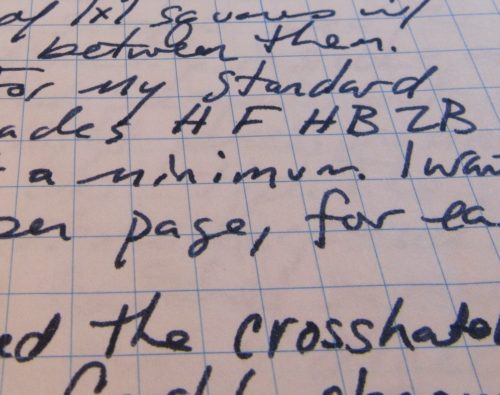 of 1x1 squares
between them.
for my standard
ades H F HB 2B
a minimum. I wan
per page, for ea
ed the crosshatch